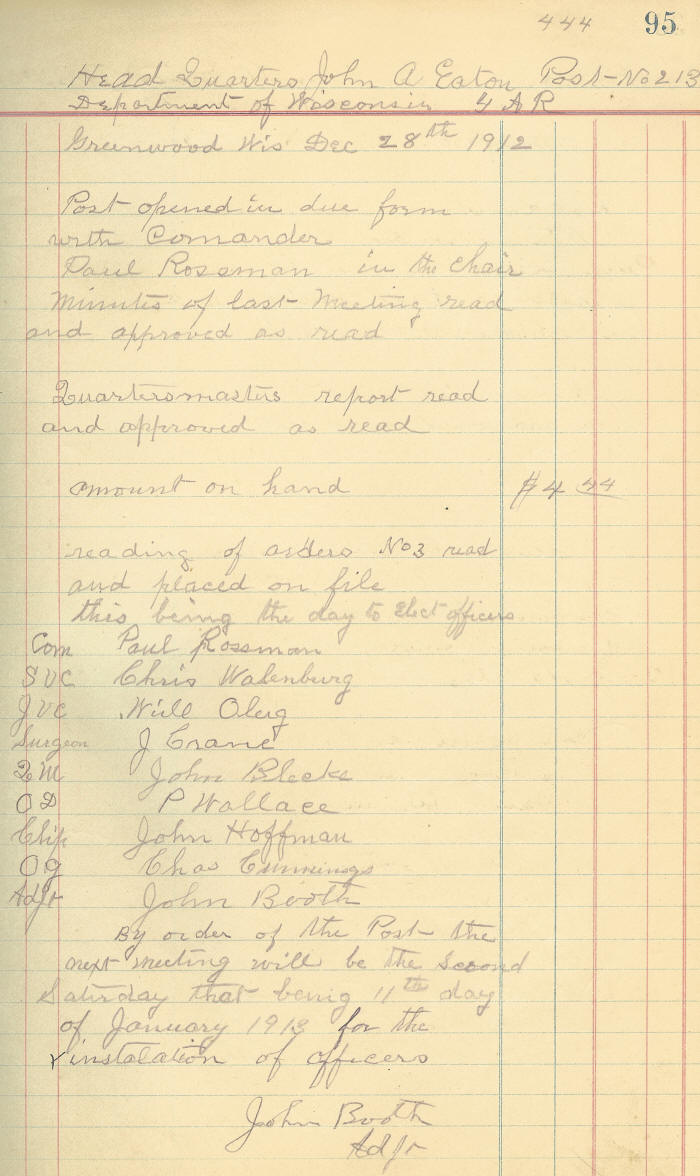 444 95
Head Quarters John A Eaton Post No 213
Department of Wisconsin G A R
Greenwood Wis Dec 28th 1912
Post opened in due form
with Comander
Paul Rossman in the chair
Minutes of last Meeting read
and approved as read
Quartersmasters report read
and approved as read
amount on hand $4 44
reading of orders No 3 read
and placed on file
this being the day to Elect officers
Com Paul Rossman
SVC Chris Walenburg
JVC Will Oleg
Surgeon J Crane
QM John Blecke
OD P Wallace
Chip John Hoffman
OG Chas Cummings
Adjt John Booth
By order of the Post the
next meeting will be the second
Saturday that being 11th day
of January 1913 for the
instalation of officers
John Booth
Adjt